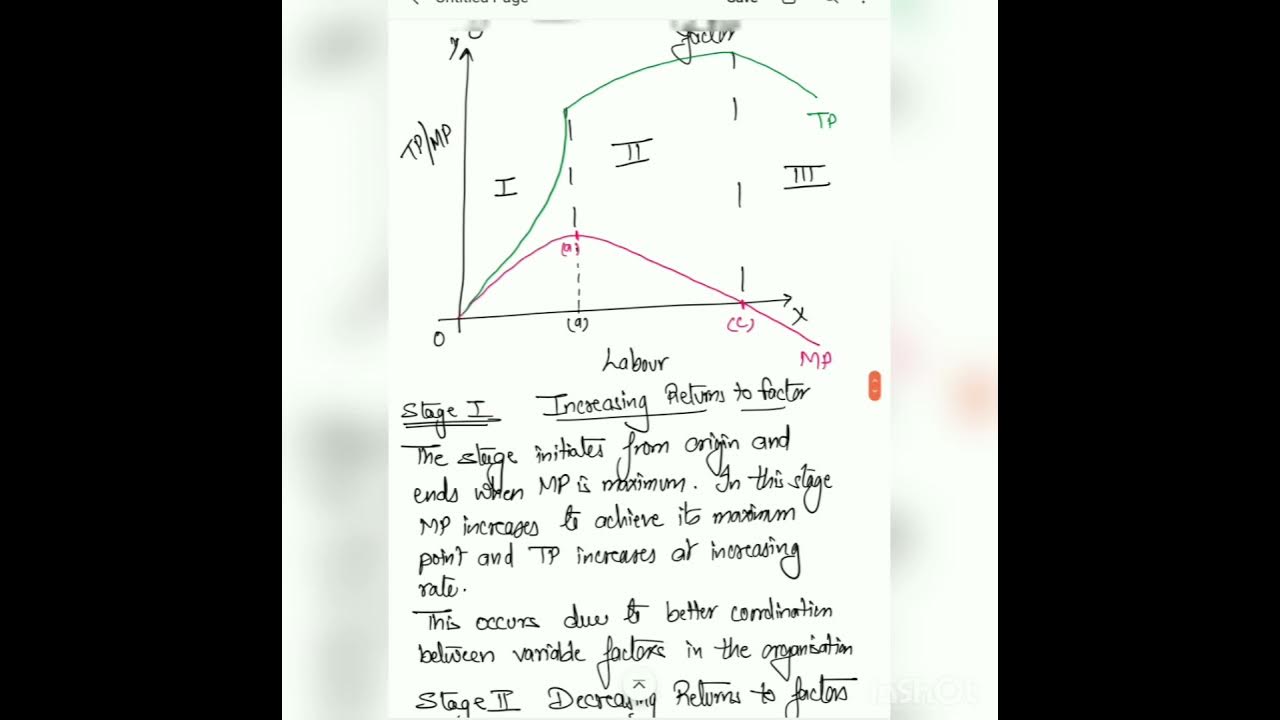 Untitled Page
Save
factor
y
TP/MP
TP
I
II
III
(a)
O
(a)
(c)
X
MP
Labour
Stage I Increasing Returns to factor
The stage initiates from origin and
ends when MP is maximum. In this stage
MP increases to achieve its maximum
point and TP increases at increasing
rate.
This occurs due to better coordination
between variable factors in the organisation
Stage II Decreasing Returns to factors
InShOt